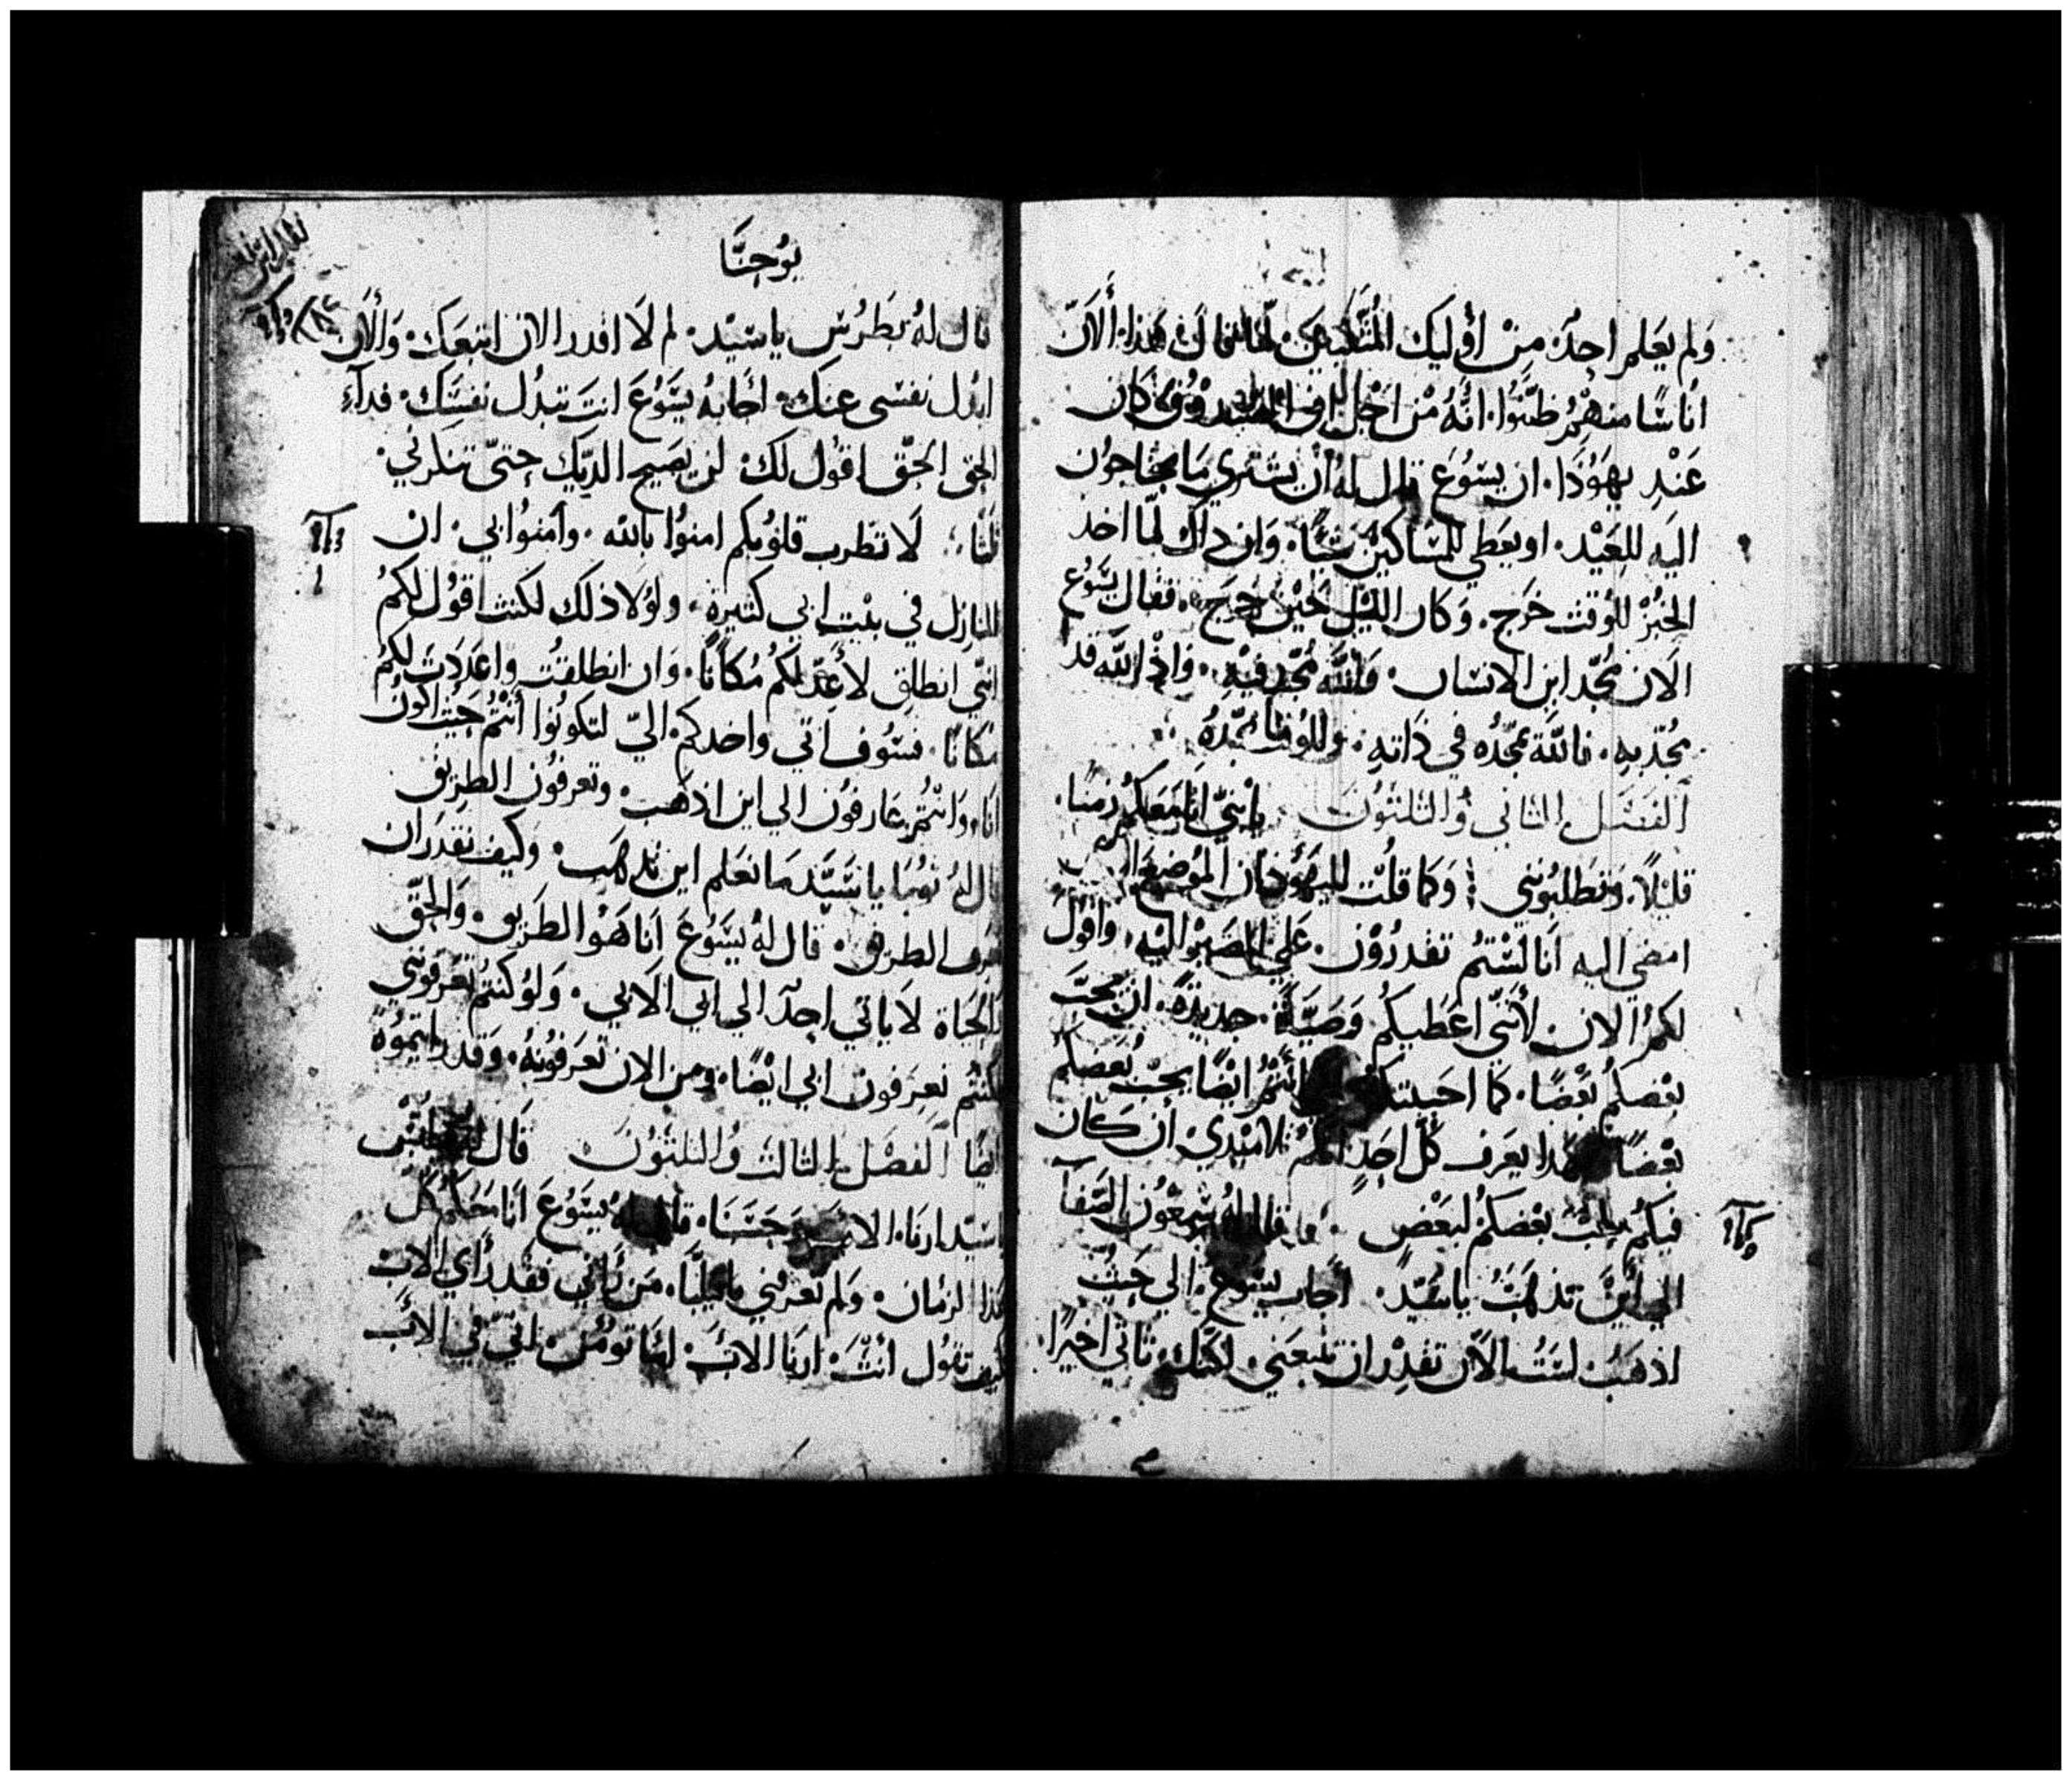 ولم يَعلم احدٌ مِنْ أوُليك المُتَّكيين لماذا قال هذا. أَلاَنّ
أناسًا منهُمْ ظَنّوُا. انَّهُ مْن اَجْل الصُندوُق كان
عَنْدِ يهوُدَا. ان يسَوُعَ قال لهُ أنْ يشتري مَا يحتاجوُن
اليَه للعَيْد. او يعَطي للمسَاكينُ شيًّا. وَان ذاك لمّا اخد
الخبُزْ للوُقت خرَج. وَكان الليْل حَيْن خرَج. فقال يسَوُع
الَان مُجّد ابن الانسَان. وَاللَّه مُجّد فيْهِ. وَاذْ اللَّه قد
مجُدّ بهِ. فاللَّه يمَجّدُه في ذَاتهِ. وللوُقت يمَجّدهُ
الفصَل الثاني وُالثلثوُن يا بنيّ انا مَعَكُم زمنًا.
قليْلًا. وَتطلبوُنني وَكما قلُت لليهوُد ان الموُضع الدي
امضي اليه انَا لسْتمُ تقدرُوْن. عَلي المصَيْر اليْه. واقوُل
لكمُ الان. لأَننّي اعَطيكُم وَصَيَّةً جديدَةً. ان يحَبّ
بعْضكمُ بعْضًا. كما احَببتكم انتُمْ ايْضًا يحبّ بُعَضكمُ
بعْضًا بهدا يعَرف كلّ احَدٍ انكمْ تلاميْدي. أن كَان
فيكمُ حبّ بعْضكمُ لبعَضْ قال لهُ شمِعْوُن الصَّفا
الي أَيْنَ تذهَبُ يا سَيّدْ. أَجَاب يسَوُع. الي حَيْثُ
اذهَبُ لسَتُ الاَن تقدِرْ ان تتبعَني. لكنك تاتي اخيْرًا
يوُحَنَّا
قال لهُ بَطرُسْ يا سَيْد. لم لَا اقدر الان اتبعَك. وَأَلاَن
ابدُل نفسَي عنك. اجَابهُ يسَّوُعَ انتَ تبدُل نفسَك. فدآءِ
الحق الحَقّ اقوُل لك. لن يصَيح الدّيك حتىّ تنكرني.
ثلثا. لَا تطرب قلوُبكم امنوُا باللّه. وآمنوُا بي. انْ
المنازل في بيْت ابي كتيرة. ولوُلا ذلك لكنت اقوُل لكمُ
انيّ انطلِق لأعِدّ لكُمُ مُكَانًا. وَان انطلقتُ وَاعدَدَتَ لكمُ
مُكَانًا. فسَوُف اتي واخدكم اليّ لتكوُنوُا أَنْتُمُ حَيْت اكوُن
انَا. وَانْتُمْ عَارفوُن الي اين اذهَب. وتعرفوُن الطرْيق
قال لهُ توُما يا سَيَّد مَا نعَلم اين تذهَب. وكيف نقدرَ ان
نعرَف الطريق. قال لهُ يسَّوُعَ انَا هَوُ الطرَيق. وَالحَقّ
وَالحيَاة لَا ياتي احدٌ الي ابي الَا بي. وَلوُ كنتمُ تعَرفوُني
لكنتُم تعِرفون ابي ايْضًا. وَمن الان تعَرفوُنهُ. وَقد رايتموُهُ
ايضَا أَلفصَلْ الثالث وُالثلثوُن قَال لهُ فيلبُسْ
يا سَيّد ارنَا الاب وَحَسْبَنَا. قال لهُ يسَّوُعَ انَا مَعَكُم كُل
هَذا الزمان. وَلم تعَرفني يا فيلبسَّ. مَن رَاني فقدْ رَأَي الاب
كيْف تقوُل أنتَّ. ارنَا الأبَ. امَا توُمُن. انيّ في الأَب